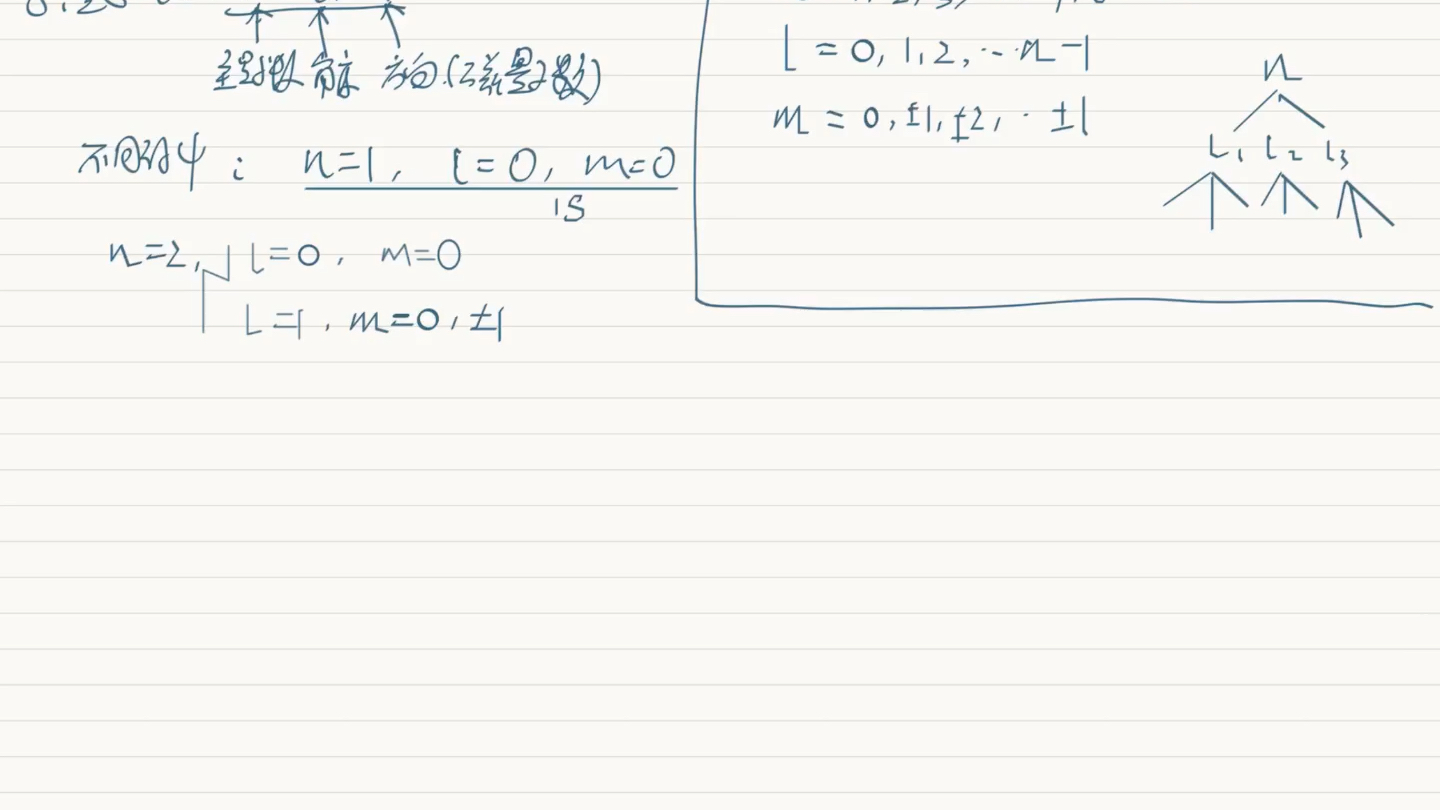 方向(磁量子数)
不同的ψ: n=1, l=0, m=0
1S
n=2, l=0, m=0
L=1, m=0, ±1
l=0,1,2,…n-1
m=0,±1,±2,·±l
n
L₁ l₂ l₃